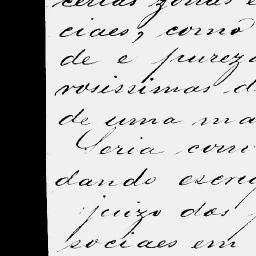 certas zonas e
ciaes, como
de e pureza
rosissimas d
de uma ma
Seria com
dando escru
juizo dos
sociaes em